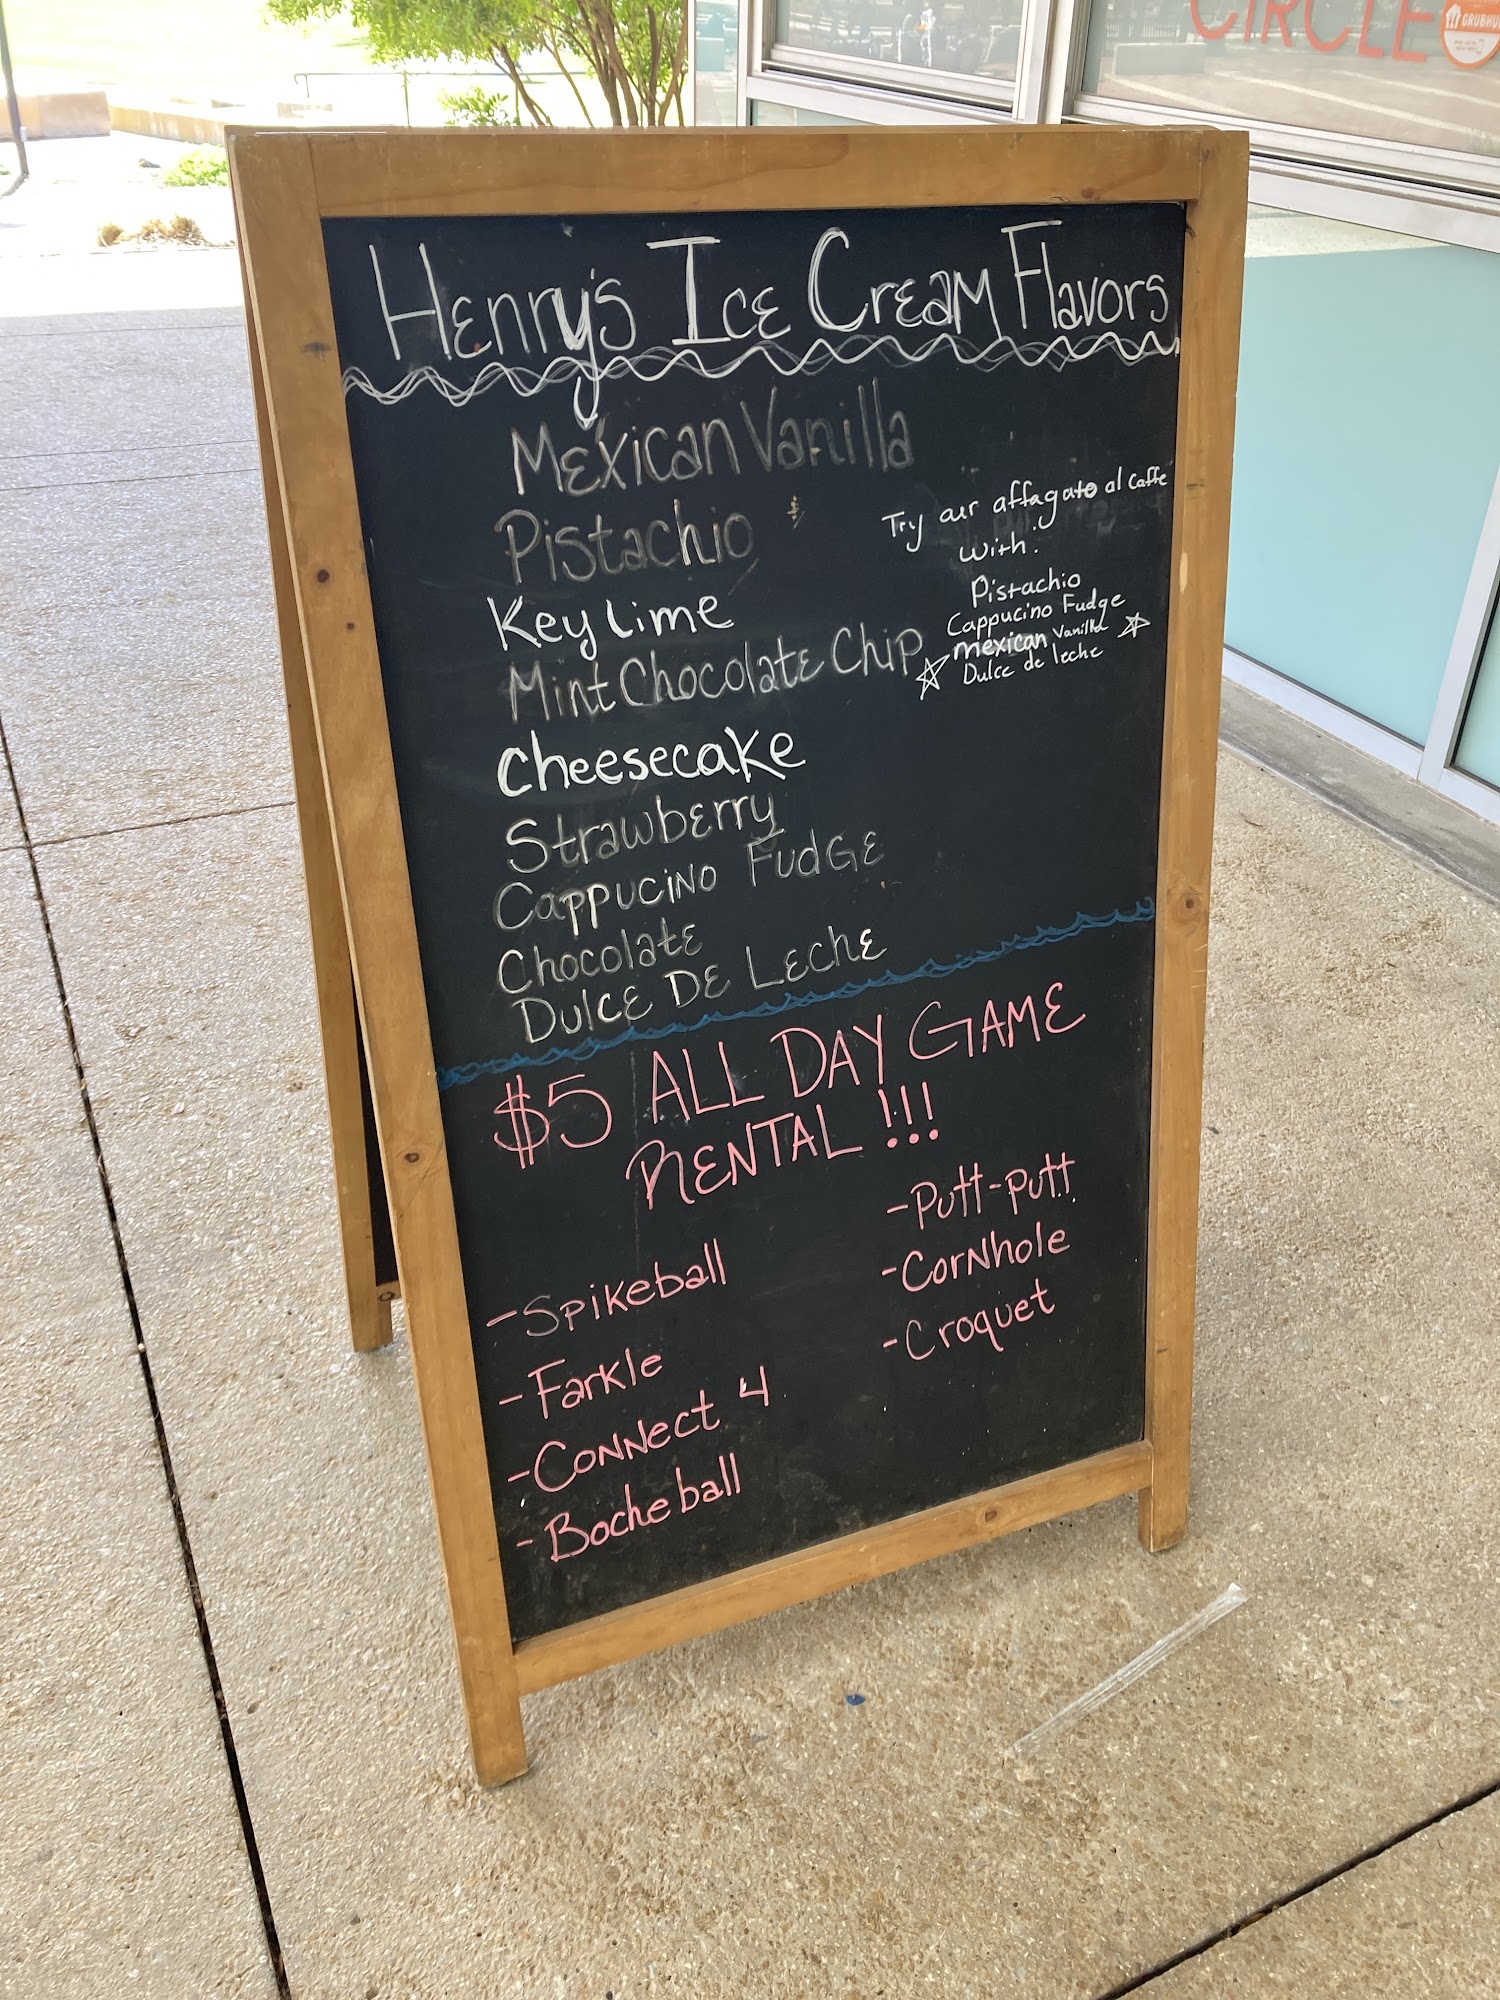 CIRCLE
GRUBHUB
Henry's Ice Cream Flavors
Mexican Vanilla
Pistachio
Key lime
Mint Chocolate Chip
Cheesecake
Strawberry
Cappucino Fudge
Chocolate
Dulce De Leche
Try our affagato al caffe
with:
Pistachio
Cappucino Fudge
mexican vanilla
Dulce de leche
$5 ALL DAY GAME
RENTAL!!!
-Spikeball
-Farkle
-Connect 4
-Boche ball
-Putt-putt
-Cornhole
-Croquet